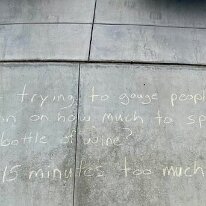 trying to gauge peopl
on on how much to sp
bottle of wine?
15 minutes too much